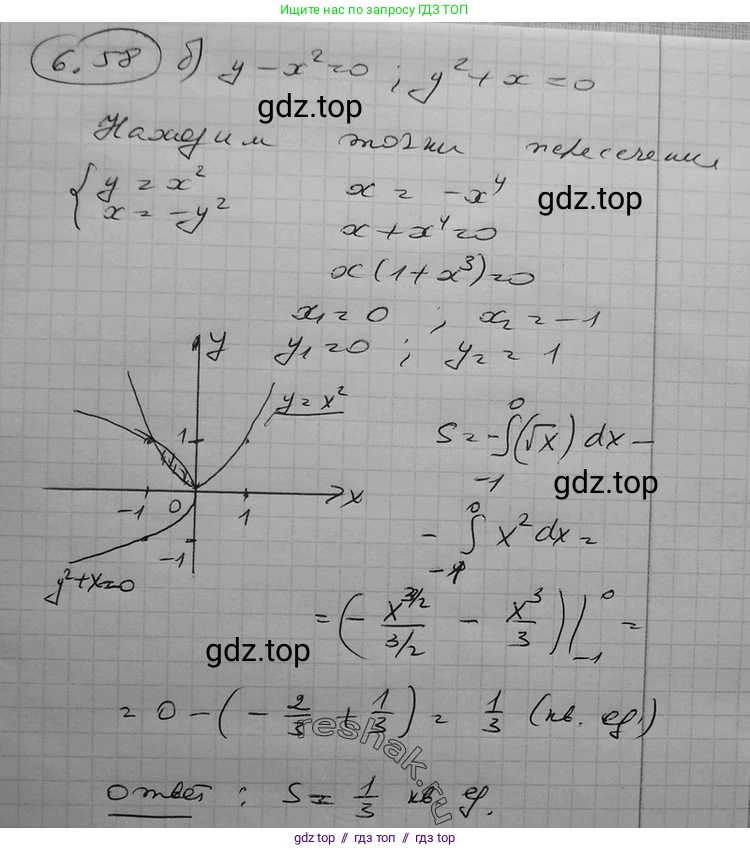 Ищите правильные решения на ГДЗ ТОП
6.58 б) y - x² = 0 ; y² + x = 0
gdz.top
Находим точки пересечения
{ y = x²
x = -y²
x = -x⁴
gdz.top
x + x⁴ = 0
x(1 + x³) = 0
x₁ = 0 ; x₂ = -1
y₁ = 0 ; y₂ = 1
y
y = x²
1
-1
0
1
x
-1
y² + x = 0
S = -∫₋₁⁰(√x) dx -
gdz.top
- ∫₋₁⁰ x² dx =
= (- x^(3/2)/(3/2) - x³/3)|₋₁⁰ =
gdz.top
= 0 - (- 2/3 + 1/3) = 1/3 (кв. ед.)
reshak.ru
Ответ : S = 1/3 кв ед.
gdz.top // гдз топ // гдз.топ